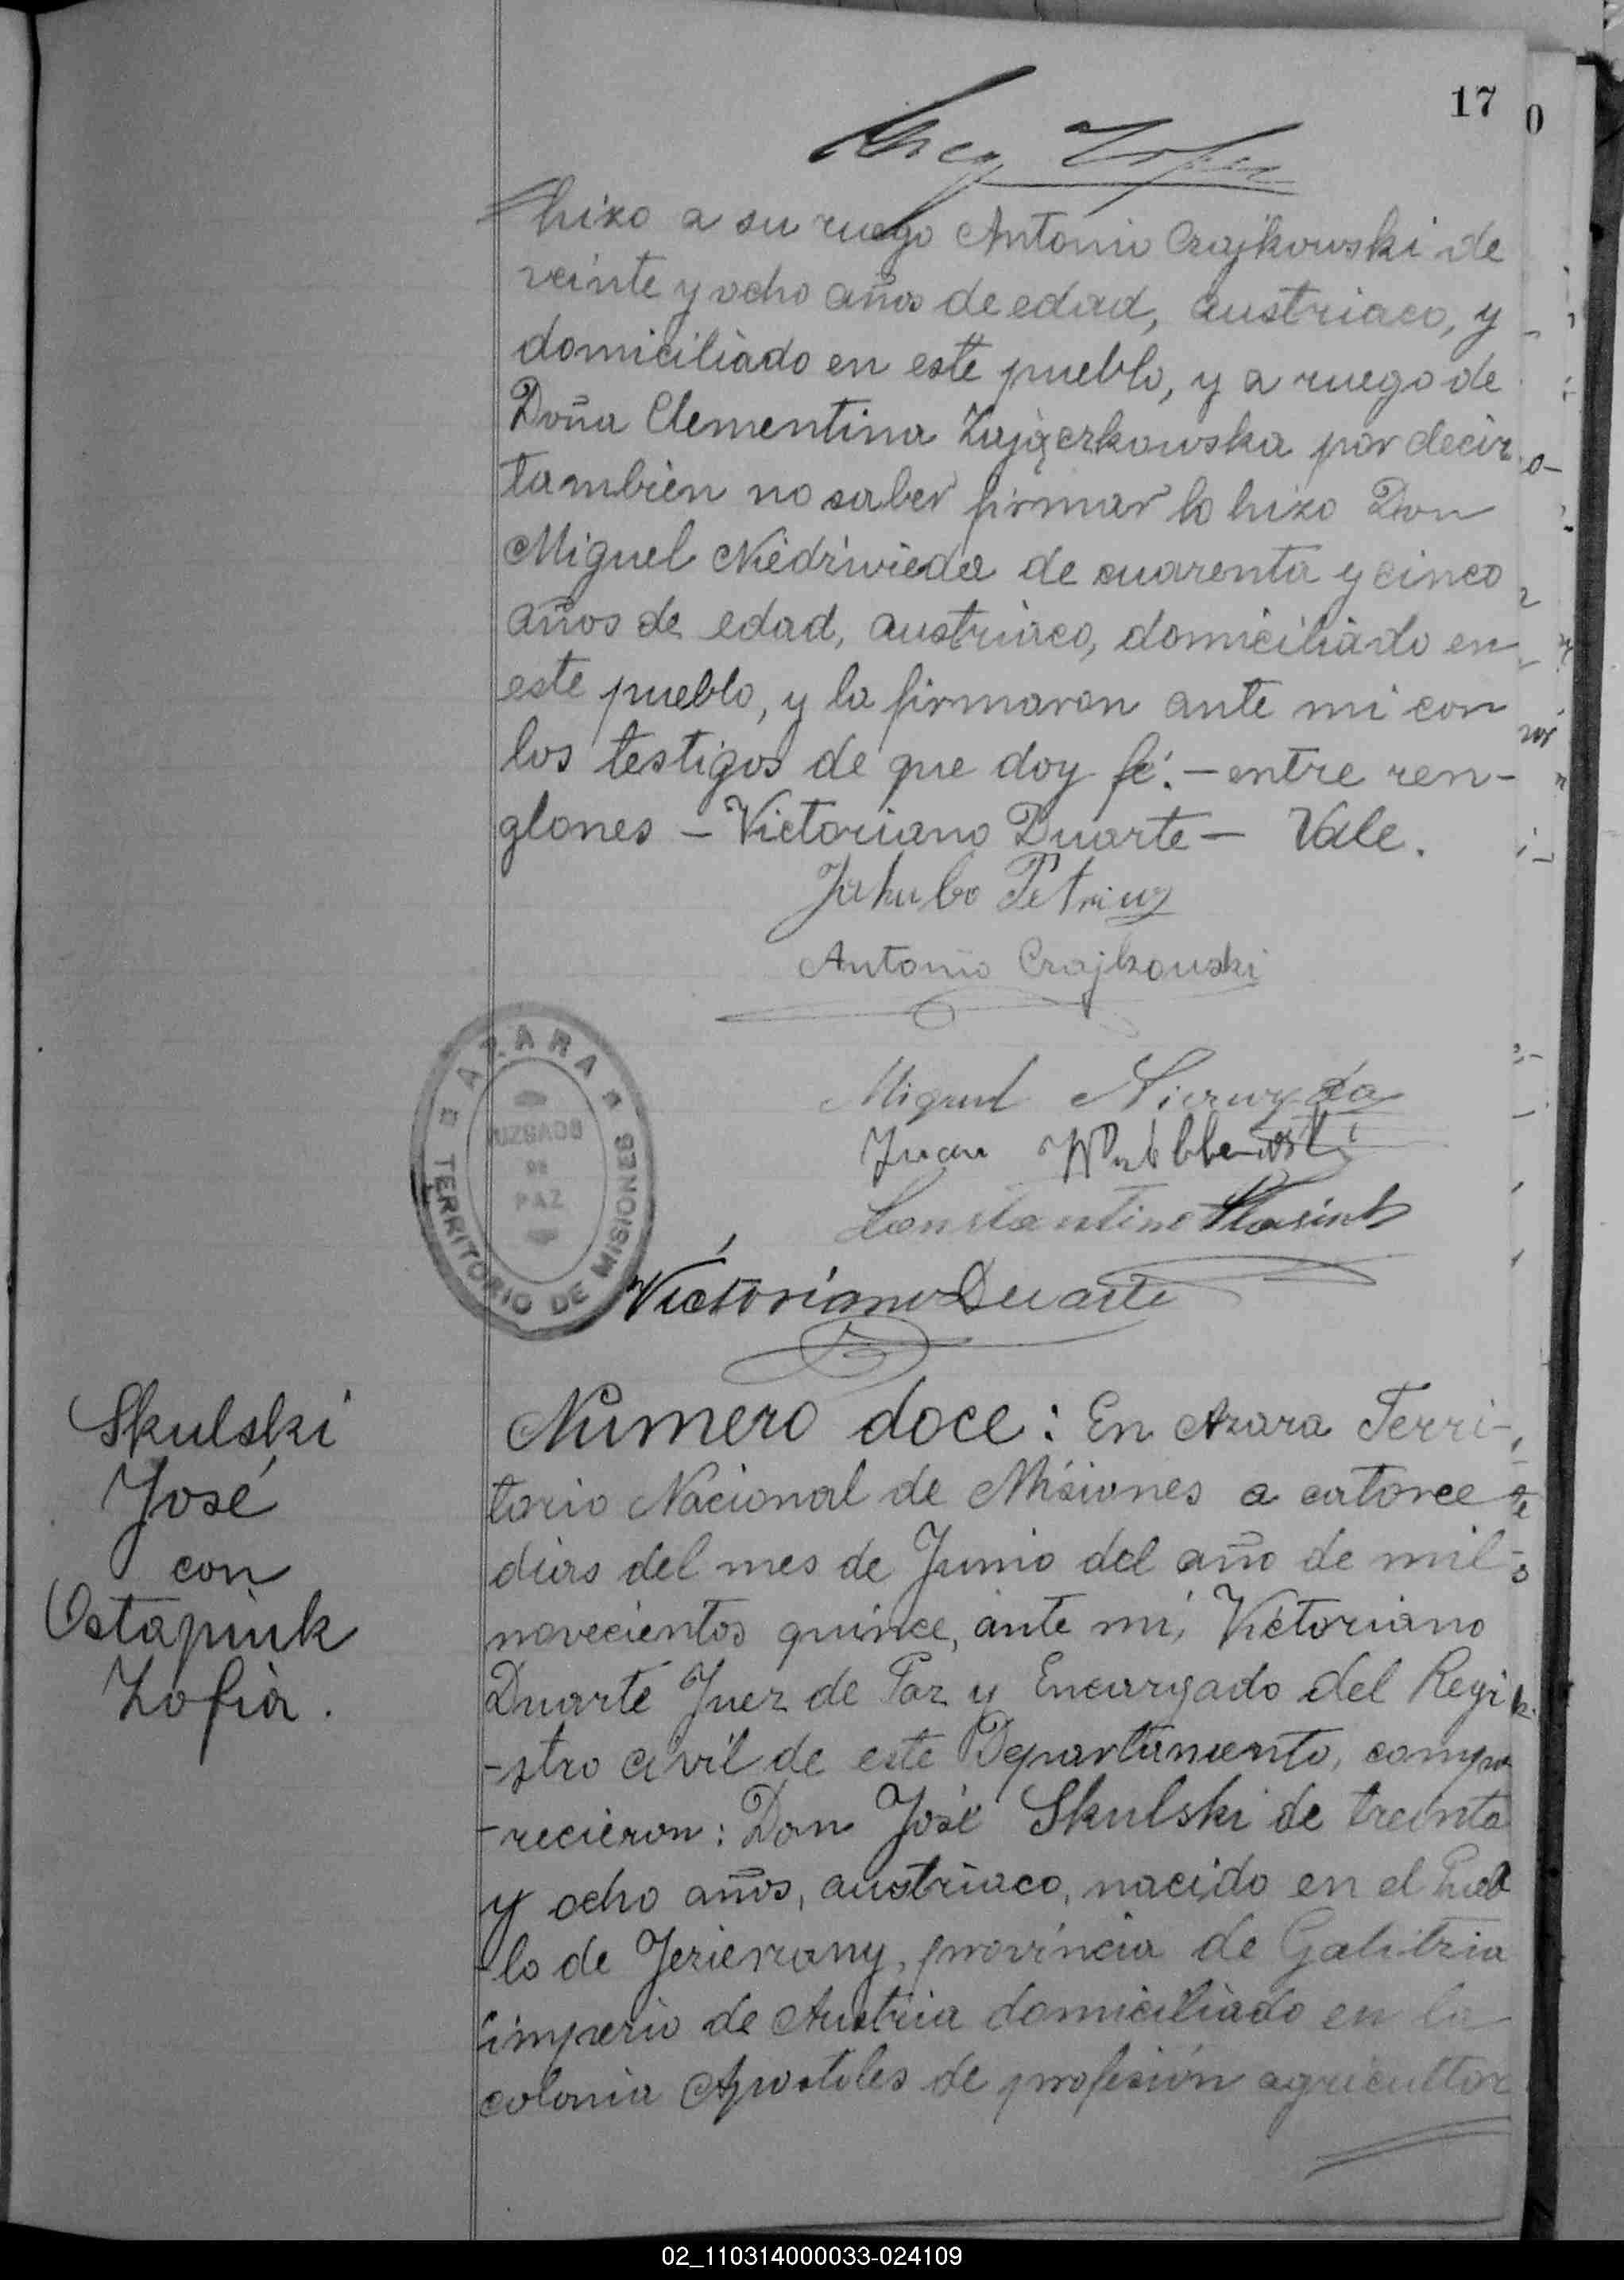 17
0
hizo a su ruego Antonio Czajkowski de
veinte y ocho años de edad, austriaco, y
domiciliado en este pueblo, y a ruego de
Doña Clementina Zajączkowska por decir
tambien no saber firmar lo hizo Don
Miguel Niedźwieda de cuarenta y cinco
años de edad, austriaco, domiciliado en
este pueblo, y la firmaron ante mi con
los testigos de que doy fé. - entre ren-
glones - Victoriano Duarte - Vale.
Jakubo
Antonio Czajkowski
AZARA
JUZGADO
DE
PAZ
TERRITORIO DE MISIONES
Miguel
Juan
Constantino
Victoriano Duarte
Skulski
José
con
Ostapiuk
Zofia.
Número doce: En Azara Terri-
torio Nacional de Misiones a catorce
dias del mes de Junio del año de mil
novecientos quince, ante mi, Victoriano
Duarte Juez de Paz y Encargado del Regi
-stro civil de este Departamento, compa
-recieron: Don José Skulski de treinta
y ocho años, austriaco, nacido en el Pueb
-lo de Jezierzany, provincia de Galitzia
imperio de Austria domiciliado en la
colonia Apostoles de profesión agricultor
02_110314000033-024109